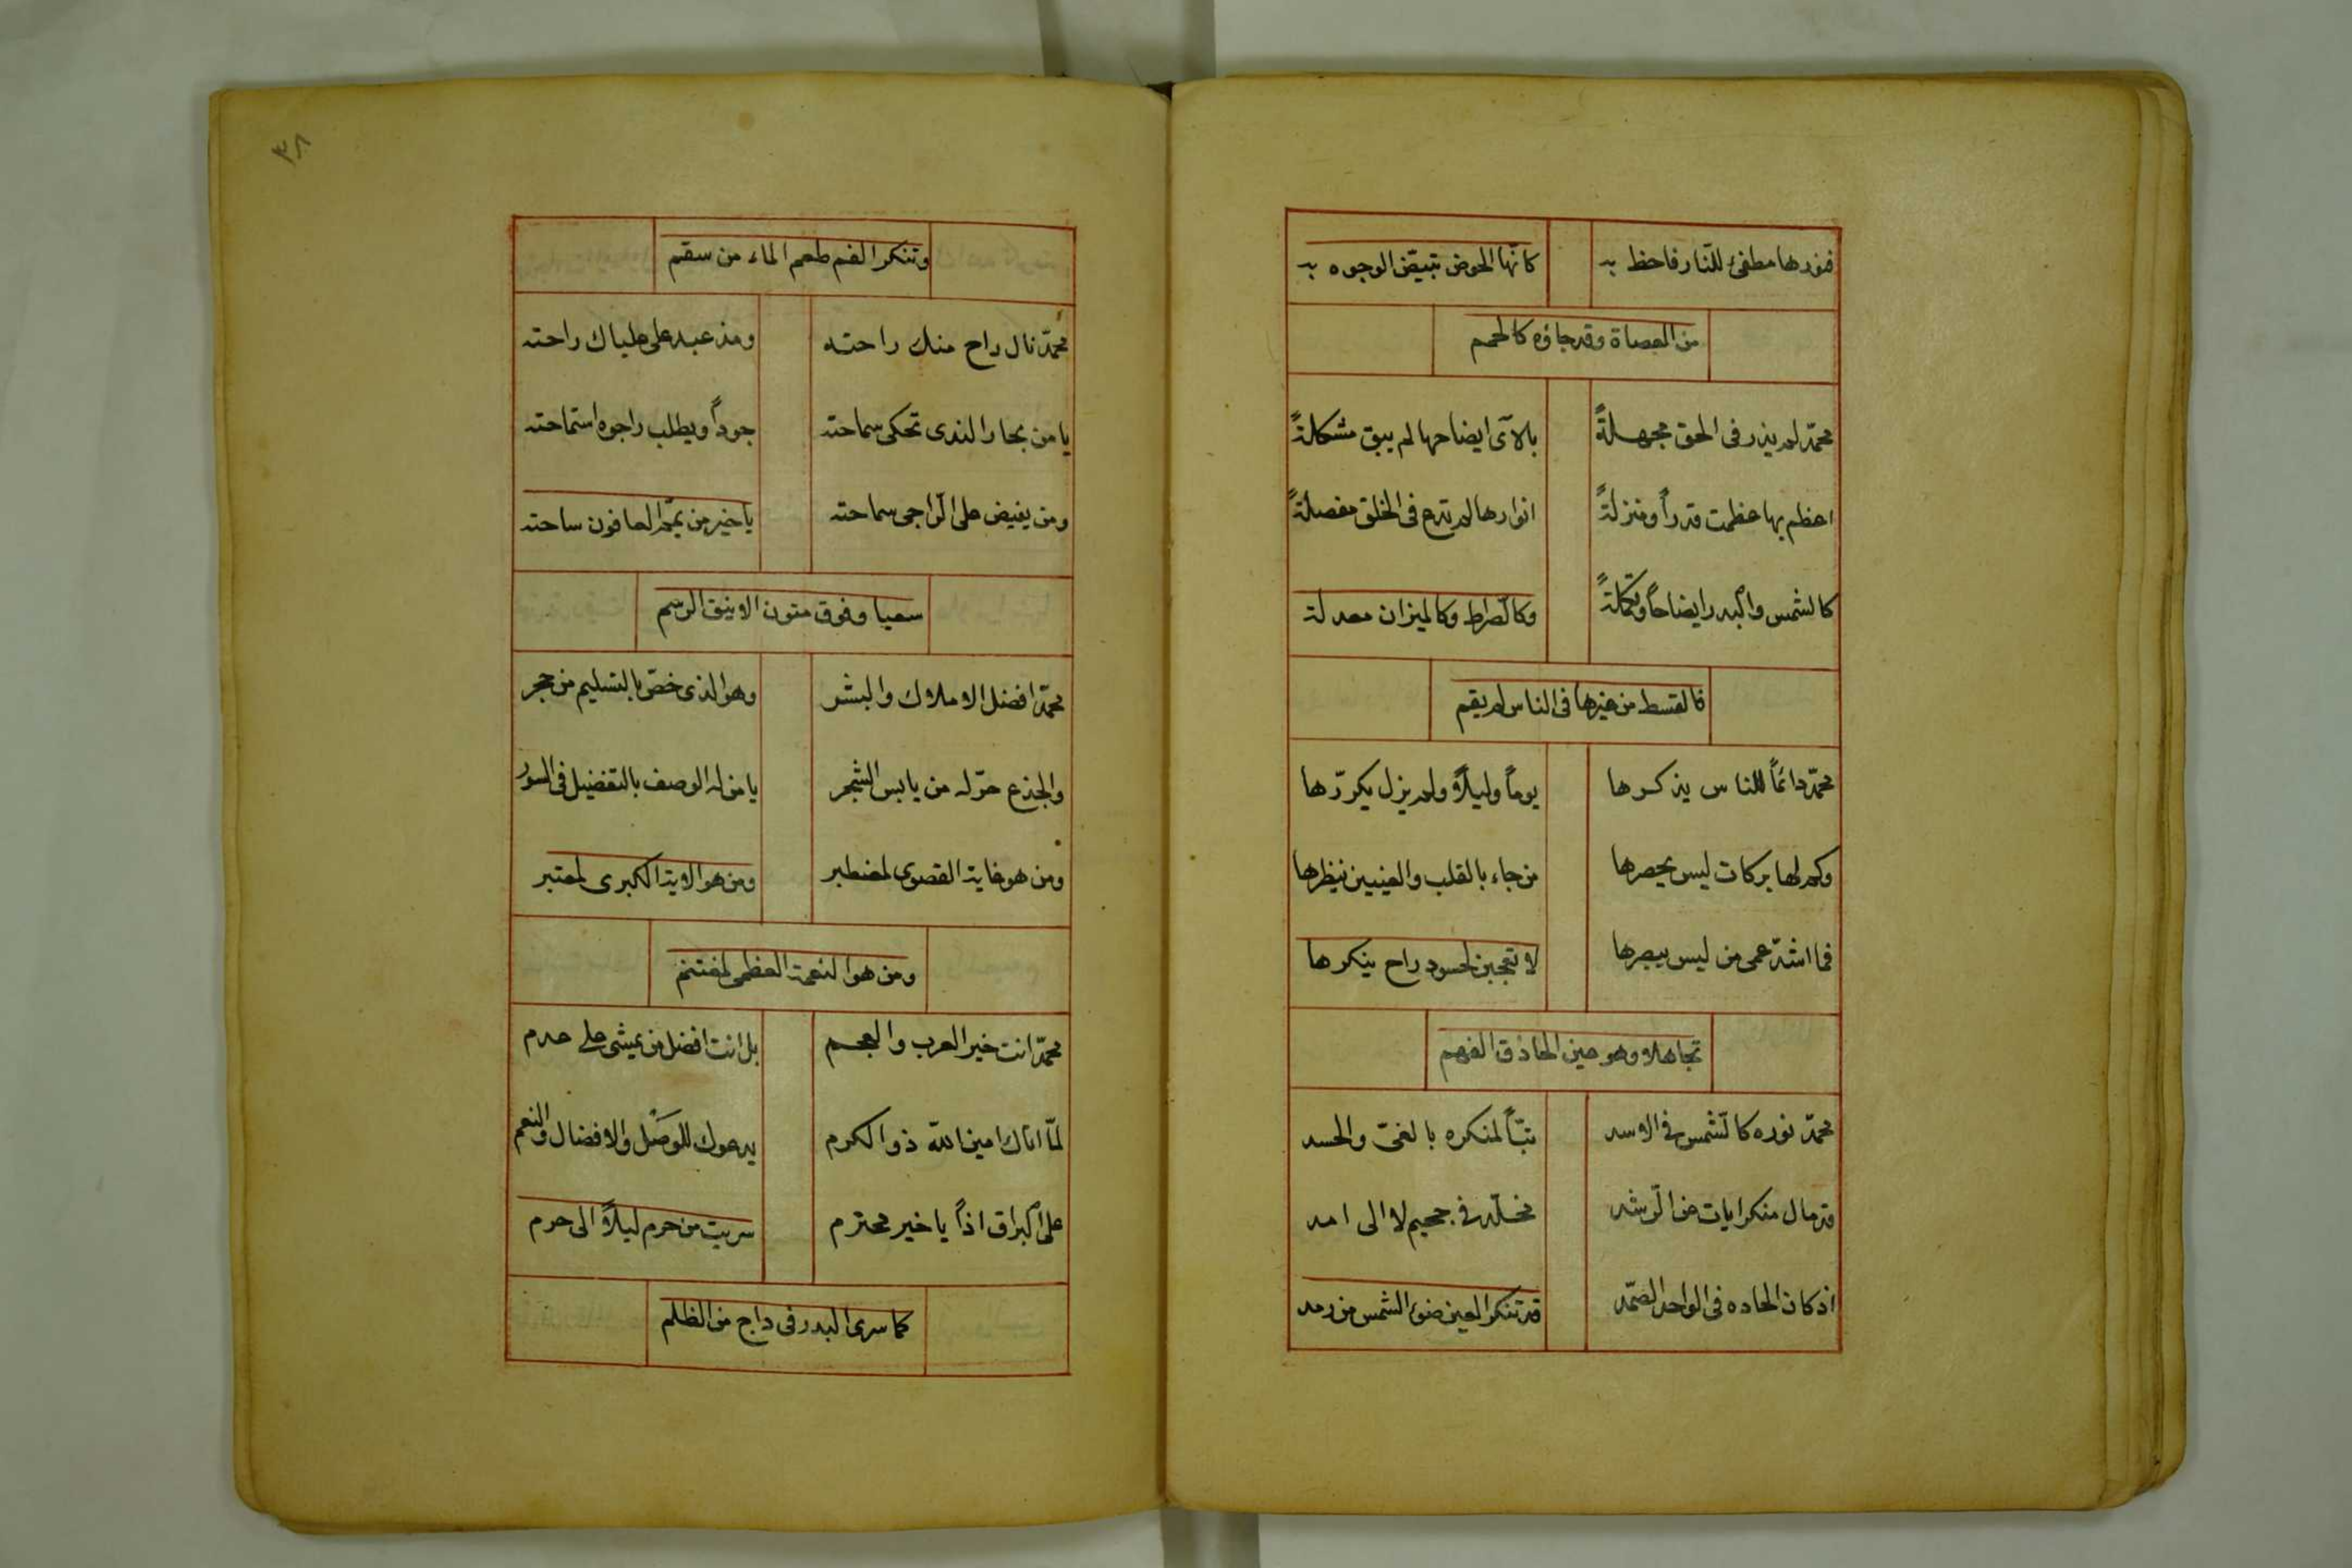 فنورها مطفئ للنّار فاحظ به كأنّها الحوض تبيضّ الوجوه به
من العصاة وقد جاؤه كالحمم
محمّد لم يذر فى الحق مجهلةً بالآى ايضاحها لم يبق مشكلةً
اعظم بها عظمت قدراً ومنزلةً انوارها لم تدع فى الخلق معضلةً
كالشمس والبدر ايضاحاً وتكملةً وكالصّراط وكالميزان معدلة
فالقسط من غيرها فى الناس لم يقم
محمّد دائماً للناس يذكرها يوماً وليلاً ولم يزل يكرّرها
وكم لها بركات ليس يحصرها من جاء بالقلب والعينين ينظرها
فما اشدّ عمى من ليس يبصرها لا تعجبن لحسود راح ينكرها
تجاهلا وهو عين الحاذق الفهم
محمّد نوره كالشّمس فى الاسد تبّاً لمنكره بالغىّ والحسد
قد مال منكر ايات عن الرّشد مخلّد فى جحيم لا الى امد
اذ كان الحاده فى الواحد الصّمد قد تنكر العين ضوء الشمس من رمد
٣٨
وتنكر الفم طعم الماء من سقم
محمّد نال راح منك راحته ومذ عبد على علياك راحته
يا من بحار الندى تحكى سماحته جوداً ويطلب راجوه استماحته
ومن يفيض على الرّاجى سماحته يا خير من يمّم العافون ساحته
سعيا وفوق متون الاينق الرسم
محمّد افضل الاملاك والبشر وهو الذى خصّ بالتسليم من حجر
والجذع حنّ له من يابس الشجر يا من له الوصف بالتفضيل فى السور
ومن هو غاية القصوى لمضطبر ومن هو الاية الكبرى لمعتبر
ومن هو النعمة العظمى لمغتنم
محمّد انت خير العرب والعجم بل انت افضل من يمشى على قدم
لمّا اتاك امين الله ذو الكرم يدعوك للوصل والافضال والنعم
على البراق اذاً يا خير محترم سريت من حرم ليلاً الى حرم
كما سرى البدر فى داج من الظلم